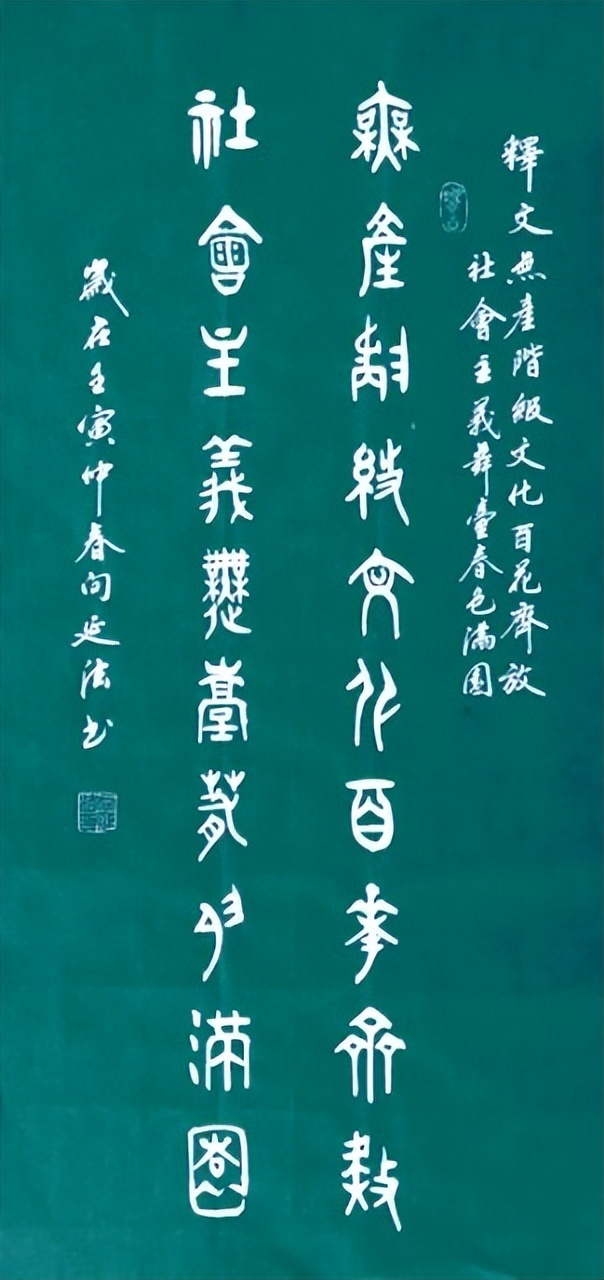 釋文無產階級文化百花齊放
社會主義舞臺春色滿園
無產階級文化百花齊放
社會主義舞臺春色滿園
歲在壬寅仲春向延法書